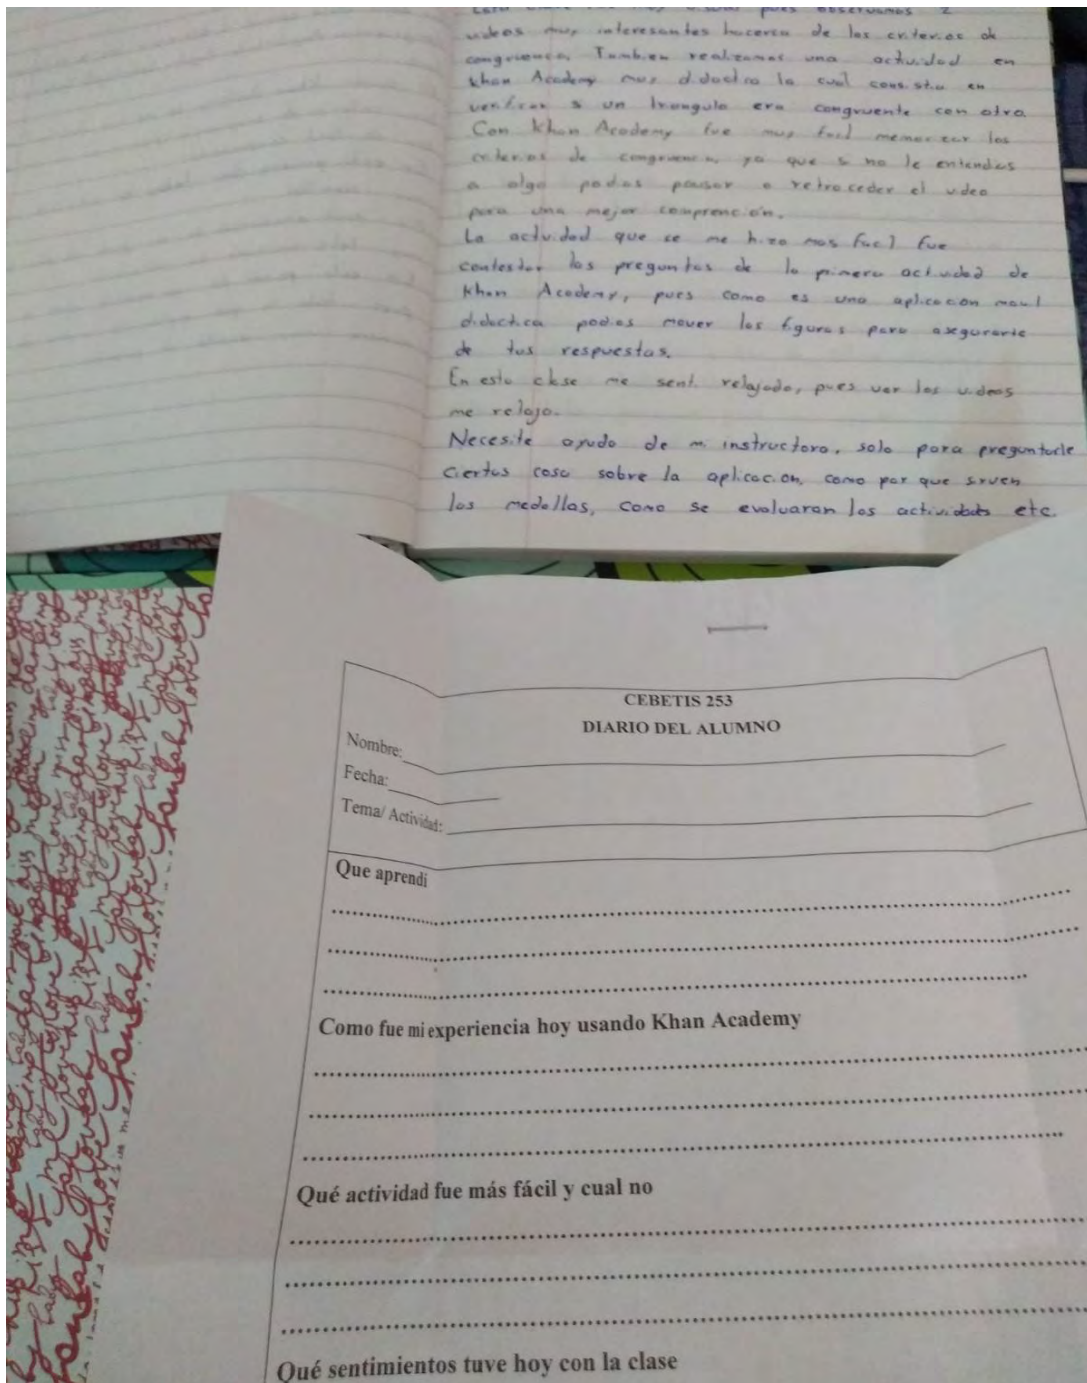 Esta clase fue muy visual pues observamos 2
videos muy interesantes hacerca de los criterios de
congruencia, Tambien realizamos una actividad en
Khan Academy muy didactica la cual consistia en
verificar si un triangulo era congruente con otro.
Con Khan Academy fue muy facil memorizar los
criterios de congruencia, ya que si no le entendias
a algo podias pausar o retroceder el video
para una mejor comprención.
La actividad que se me hizo mas facil fue
contestar las preguntas de la primera actividad de
Khan Academy, pues como es una aplicacion movil
didactica podias mover las figuras para asegurarte
de tus respuestas.
En esta clase me senti relajado, pues ver los videos
me relaja.
Necesite ayuda de mi instructora, solo para preguntarle
ciertas cosa sobre la aplicacion, como por que sirven
las medallas, como se evaluaran las actividades etc.
CEBETIS 253
DIARIO DEL ALUMNO
Nombre:
Fecha:
Tema/ Actividad:
Que aprendi
Como fue mi experiencia hoy usando Khan Academy
Qué actividad fue más fácil y cual no
Qué sentimientos tuve hoy con la clase